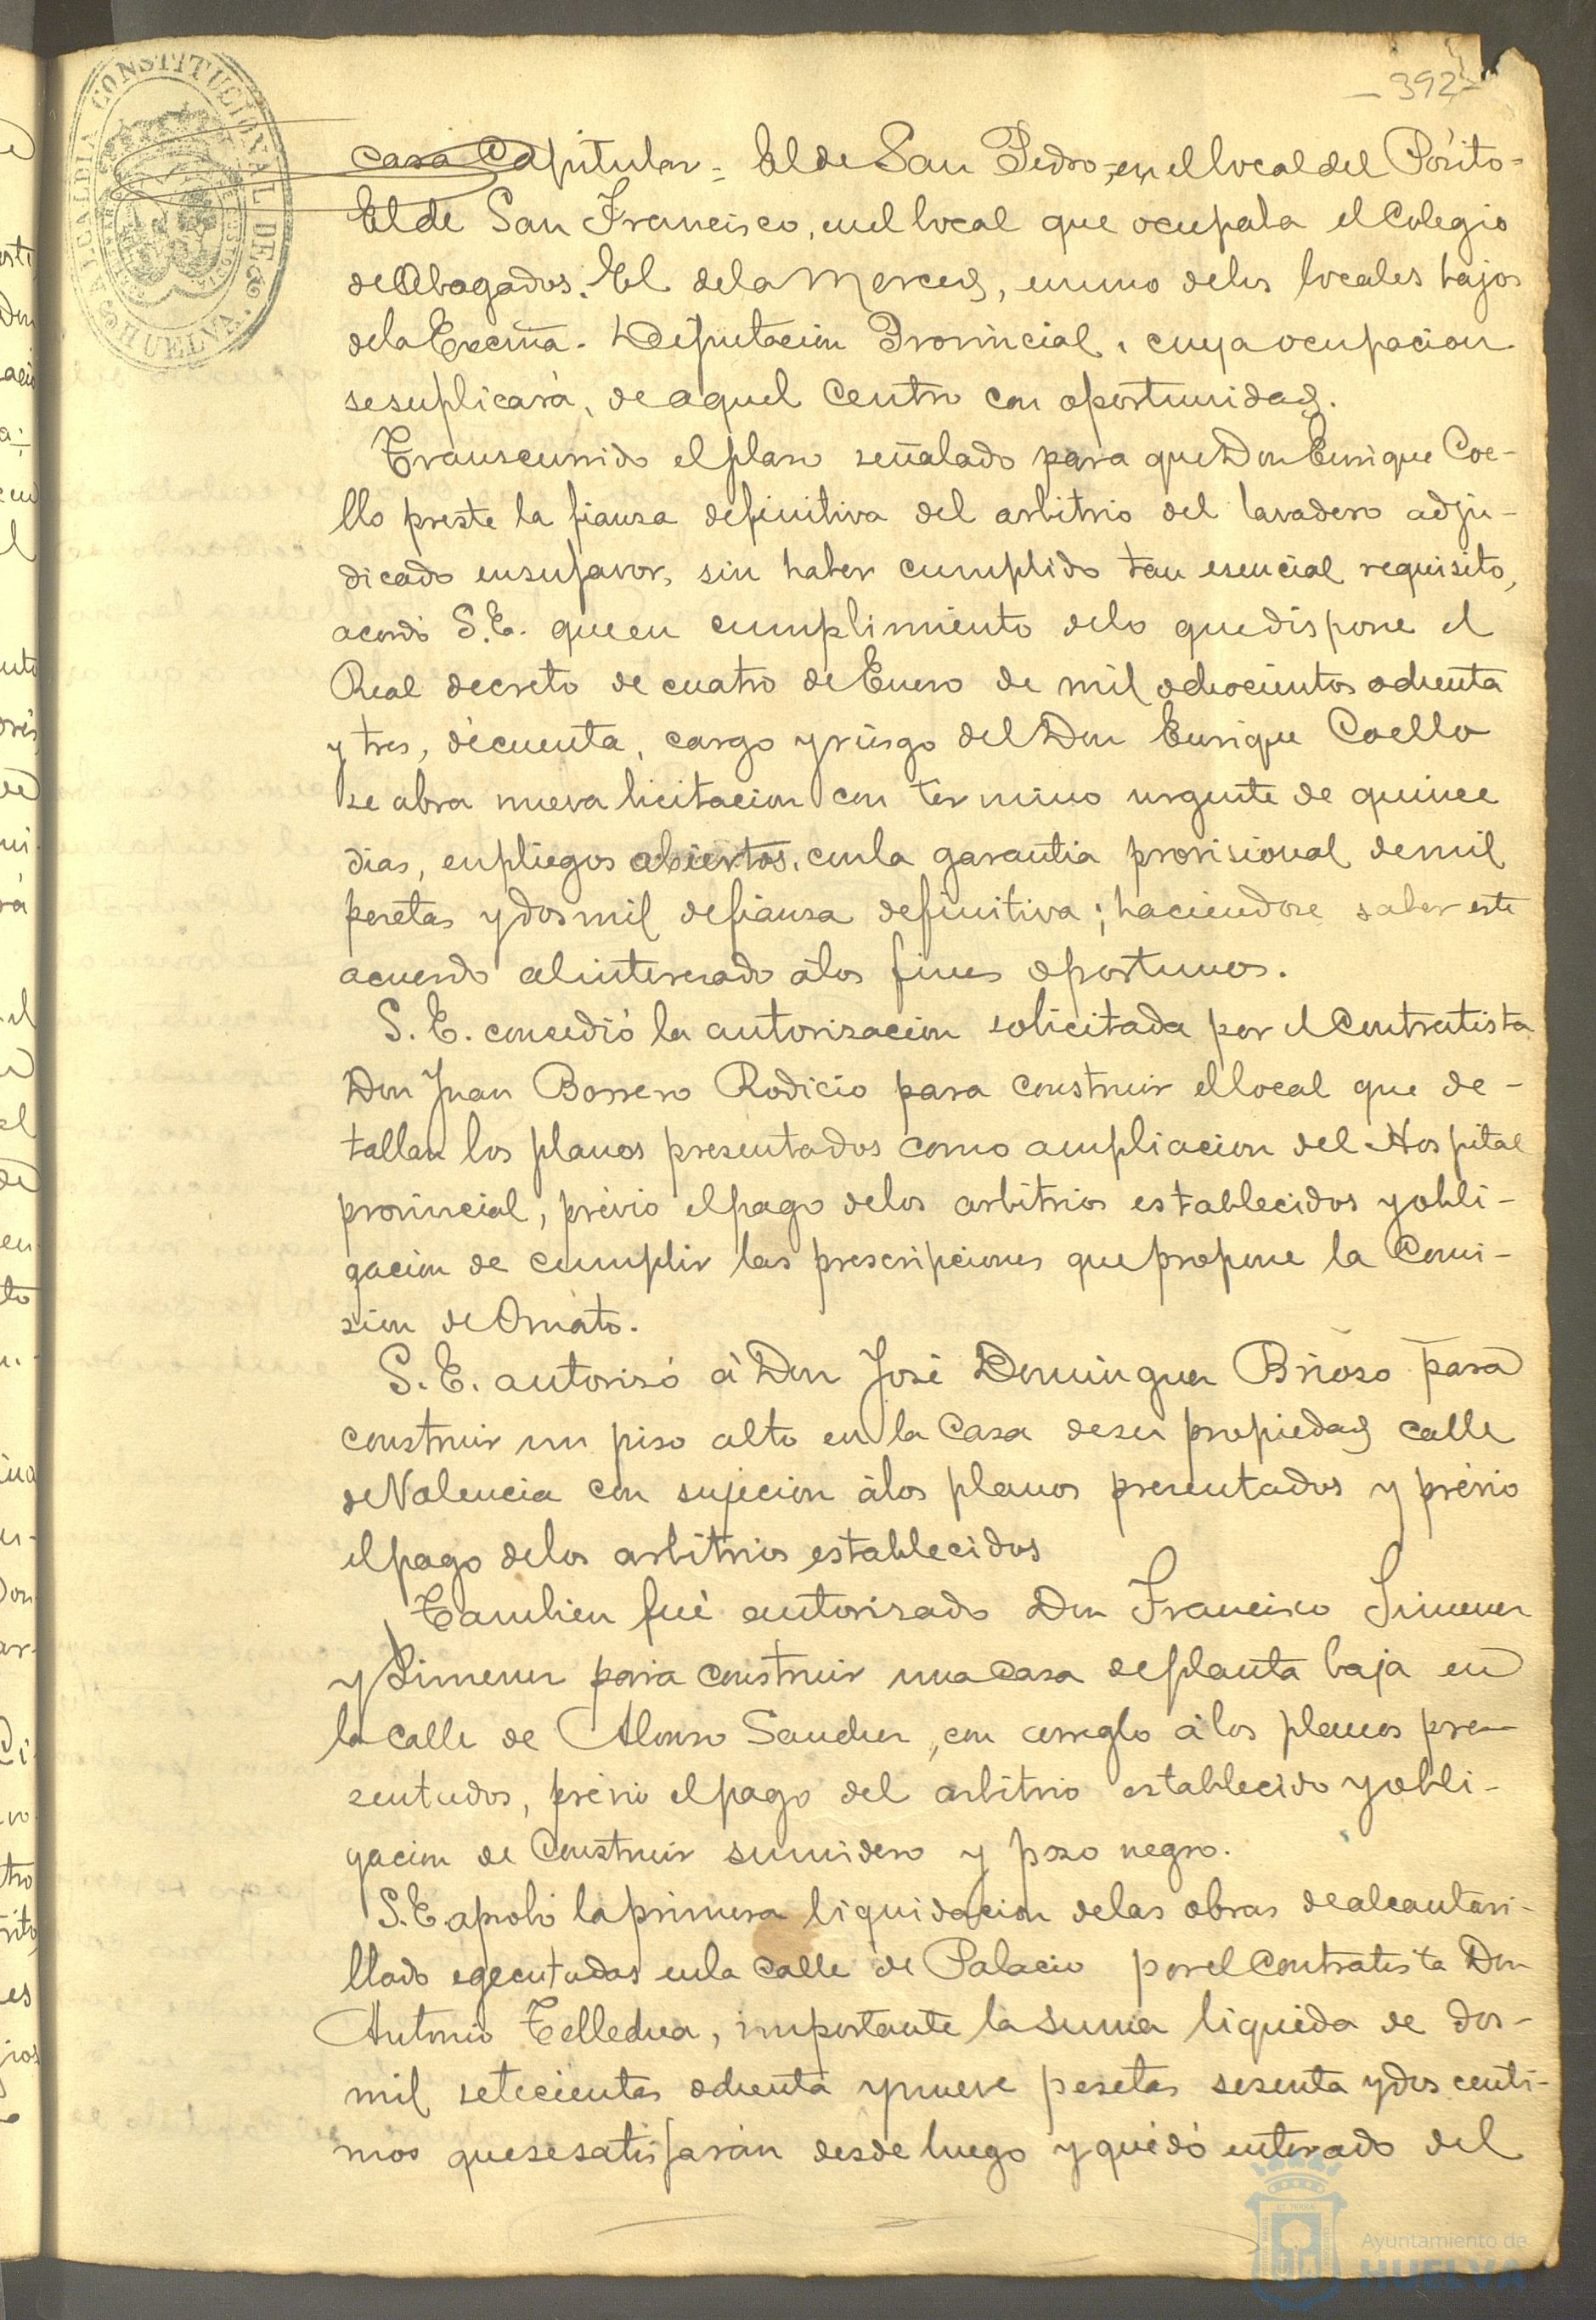 -392-
ALCALDIA CONSTITUCIONAL DE
HUELVA.
casa Capitular = El de San Pedro, en el local del Pósito=
El de San Francisco, en el local que ocupaba el Colegio
de Abogados. El de la Merced, en uno de los locales bajos
de la Excma. Diputacion Provincial, cuya ocupacion
se suplicará, de aquel Centro con oportunidad.
Transcurrido el plazo señalado para que Don Enrique Coe-
llo preste la fianza definitiva del arbitrio del lavadero adju-
dicado en su favor, sin haber cumplido tan esencial requisito,
acordó S.E. que en cumplimiento de lo que dispone el
Real decreto de cuatro de Enero de mil ochocientos ochenta
y tres, de cuenta, cargo y riesgo del Don Enrique Coello
se abra nueva licitacion con termino urgente de quince
dias, en pliegos abiertos, con la garantia provisional de mil
pesetas y dos mil de fianza definitiva; haciendose saber este
acuerdo al interesado á los fines oportunos.
S. E. concedió la autorizacion solicitada por el Contratista
Don Juan Borrero Rodicio para construir el local que de-
tallan los planos presentados como ampliacion del Hospital
provincial, prévio el pago de los arbitrios establecidos y obli-
gacion de cumplir las prescripciones que propone la Comi-
sion de Ornato.
S. E. autorizó á Don José Dominguez Brioso para
construir un piso alto en la Casa de su propiedad calle
de Valencia con sujecion á los planos presentados y prévio
el pago de los arbitrios establecidos
Tambien fué autorizado Don Francisco Jimenez
y Jimenez para construir una casa de planta baja en
la calle de Alonso Sanchez, con arreglo á los planos pre-
sentados, prévio el pago del arbitrio establecido y obli-
gacion de Construir sumidero y pozo negro.
S. E aprobó la primera liquidacion de las obras de alcantari-
llado egecutadas en la Calle de Palacio por el Contratista Don
Antonio Tellechea, importante la suma liquida de dos-
mil setecientas ochenta y nueve pesetas sesenta y dos centi-
mos que se satisfarán desde luego y quedó enterado del
Ayuntamiento de
HUELVA